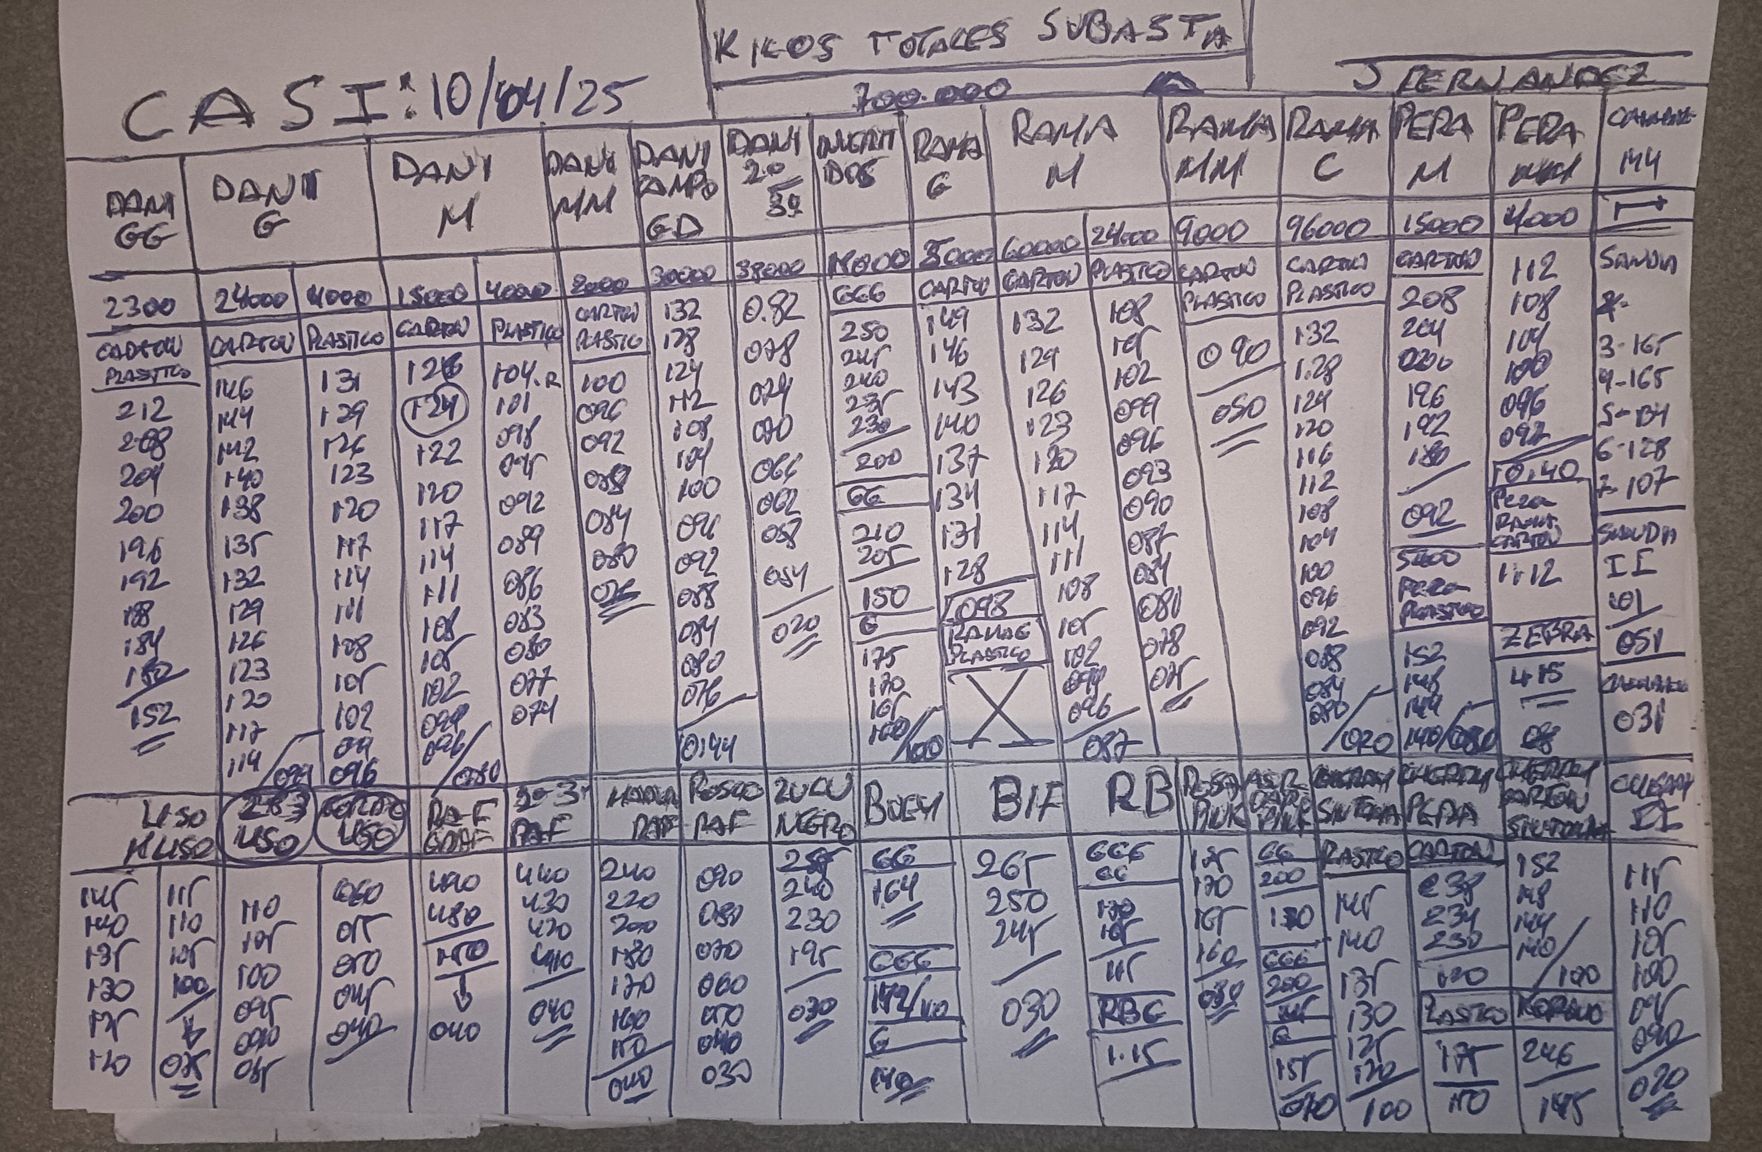 KIKOS TOTALES SUBASTA
700.000
CASI: 10/04/25
J FERNANDEZ
DANI GG
2300
CARTON
PLASTICO
212
208
204
200
196
192
188
184
180
152
DANI G
24000
CARTON
146
144
142
140
138
135
132
129
126
123
120
117
114
099
4000
PLASTICO
131
129
126
123
120
117
114
111
108
105
102
099
096
DANI M
15000
CARTON
126
124
122
120
117
114
111
108
105
102
099
096
080
4000
PLASTICO
104.R
101
098
095
092
089
086
083
080
077
074
DANI MM
CARTON
PLASTICO
100
096
092
088
084
080
076
DANI CAMPO GD
30000
132
128
124
112
108
104
100
096
092
088
084
080
076
044
DANI 20
38000
0.82
078
074
070
066
062
058
054
020
GGG
250
245
240
235
230
200
GG
210
205
150
G
175
170
165
160/100
RAMA G
CARTON
149
146
143
140
137
134
131
128
098
RAMA G
PLASTICO
X
RAMA M
60000
CARTON
132
129
126
123
120
117
114
111
108
105
102
099
096
087
24000
PLASTICO
108
105
102
099
096
093
090
087
084
081
078
075
RAMA MM
9000
CARTON
PLASTICO
090
050
RAMA C
96000
CARTON
PLASTICO
132
1.28
124
120
116
112
108
104
100
096
092
088
084
080
020
PERA M
15000
CARTON
208
204
200
196
192
180
092
PERA
PLASTICO
152
148
144
140/080
PERA MM
4000
112
108
104
100
096
092
0.40
PERA
RAMA
CARTON
1.12
ZEBRA
415
MM
SANDIA
3-165
4-165
6-128
7-107
SANDIA
II
101
051
031
LISO
145
140
135
130
125
120
115
110
105
100
075
LISO
110
105
100
095
090
085
LISO
060
055
050
045
040
RAF
490
480
450
040
RAF
440
430
420
410
040
RAF
240
220
200
180
170
160
150
040
RAF
090
080
070
060
050
040
030
NEGRO
255
240
230
195
030
BUEY
GG
164
GGG
G
140
BIF
265
250
245
030
RB
GGG
GG
170
165
115
RBG
1.15
ROSA PINK
175
170
165
160
080
PINK
GG
200
130
GGG
200
G
155
070
CHERRY
SINTONIA
PLASTICO
145
140
135
130
125
120
100
CHERRY
PERA
CARTON
238
234
230
120
PLASTICO
175
150
CHERRY
CARTON
SINTONIA
152
148
144
140
100
KORALO
246
145
CHERRY
II
115
110
105
100
095
090
020